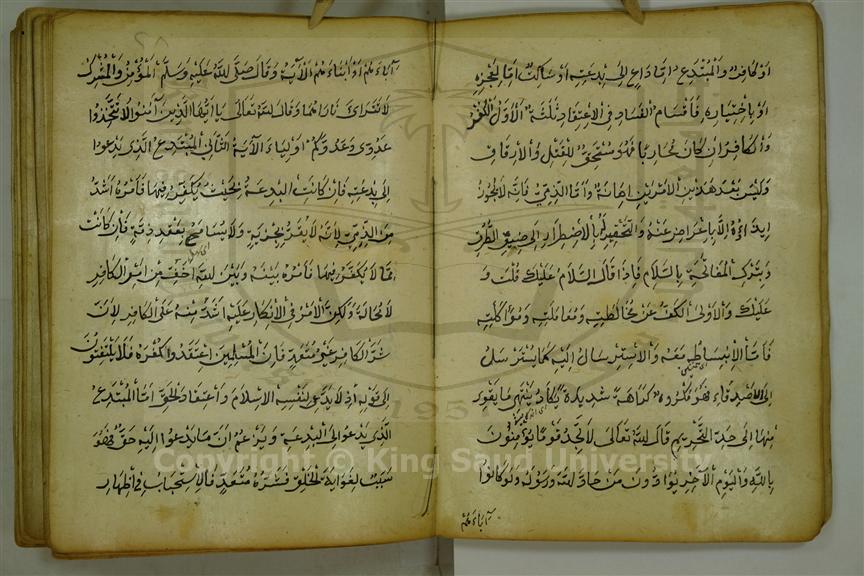 او كافر والمبتدع اما داع الى بدعته او ساكت اما لعجزه
او باختياره فاقسام الفساد في الاعتقاد ثلثة الاول الكفر
والكافر ان كان محاربا فهو مستحق للقتل والارقاق
وليس بعد هذين الامرين اهانة واما الذمي فانه لا يجوز
ايذاؤه الا بالاعراض عنه والتحقير له بالاضطرار الى ضيق الطرق
وبترك المفاتحة بالسلام فاذا قال السلام عليك قلت و
عليك والاولى الكف عن مخالطته ومعاملته ومواكلته
فاما الانبساط معه والاسترسال اليه كما يسترسل
الى الاصدقاء فهو مكروه كراهة شديدة يكاد ينتهى ما يقوى
منها الى حد التحريم قال الله تعالى لا تجد قوما يؤمنون
بالله واليوم الآخر يوادون من حاد الله ورسوله ولو كانوا
آباءهم
آباءهم او ابناءهم الآية وقال صلى الله عليه وسلم المؤمن والمشرك
لا تتراءى ناراهما وقال الله تعالى يا ايها الذين آمنوا لا تتخذوا
عدوى وعدوكم اولياء الآية الثانى المبتدع الذى يدعوا
الى بدعته فان كانت البدعة بحيث يكفر بها فامره اشد
من الذمى لانه لا يقر بجزية ولا يسامح بعقد ذمة فان كانت
مما لا يكفر بها فامره بينه وبين الله اخف من امر الكافر
لا محالة ولكن الامر فى الانكار عليه اشد منه على الكافر لان
شر الكافر غير متعد فان المسلمين اعتقدوا كفره فلا يلتفتون
الى قوله اذ لا يدعى لنفسه الاسلام واعتقاد الحق اما المبتدع
الذى يدعو الى البدعة ويزعم ان ما يدعوا اليه حق فهو
سبب لغواية الخلق فشره متعد فالاستحباب فى اظهار
1957
Copyright © King Saud University